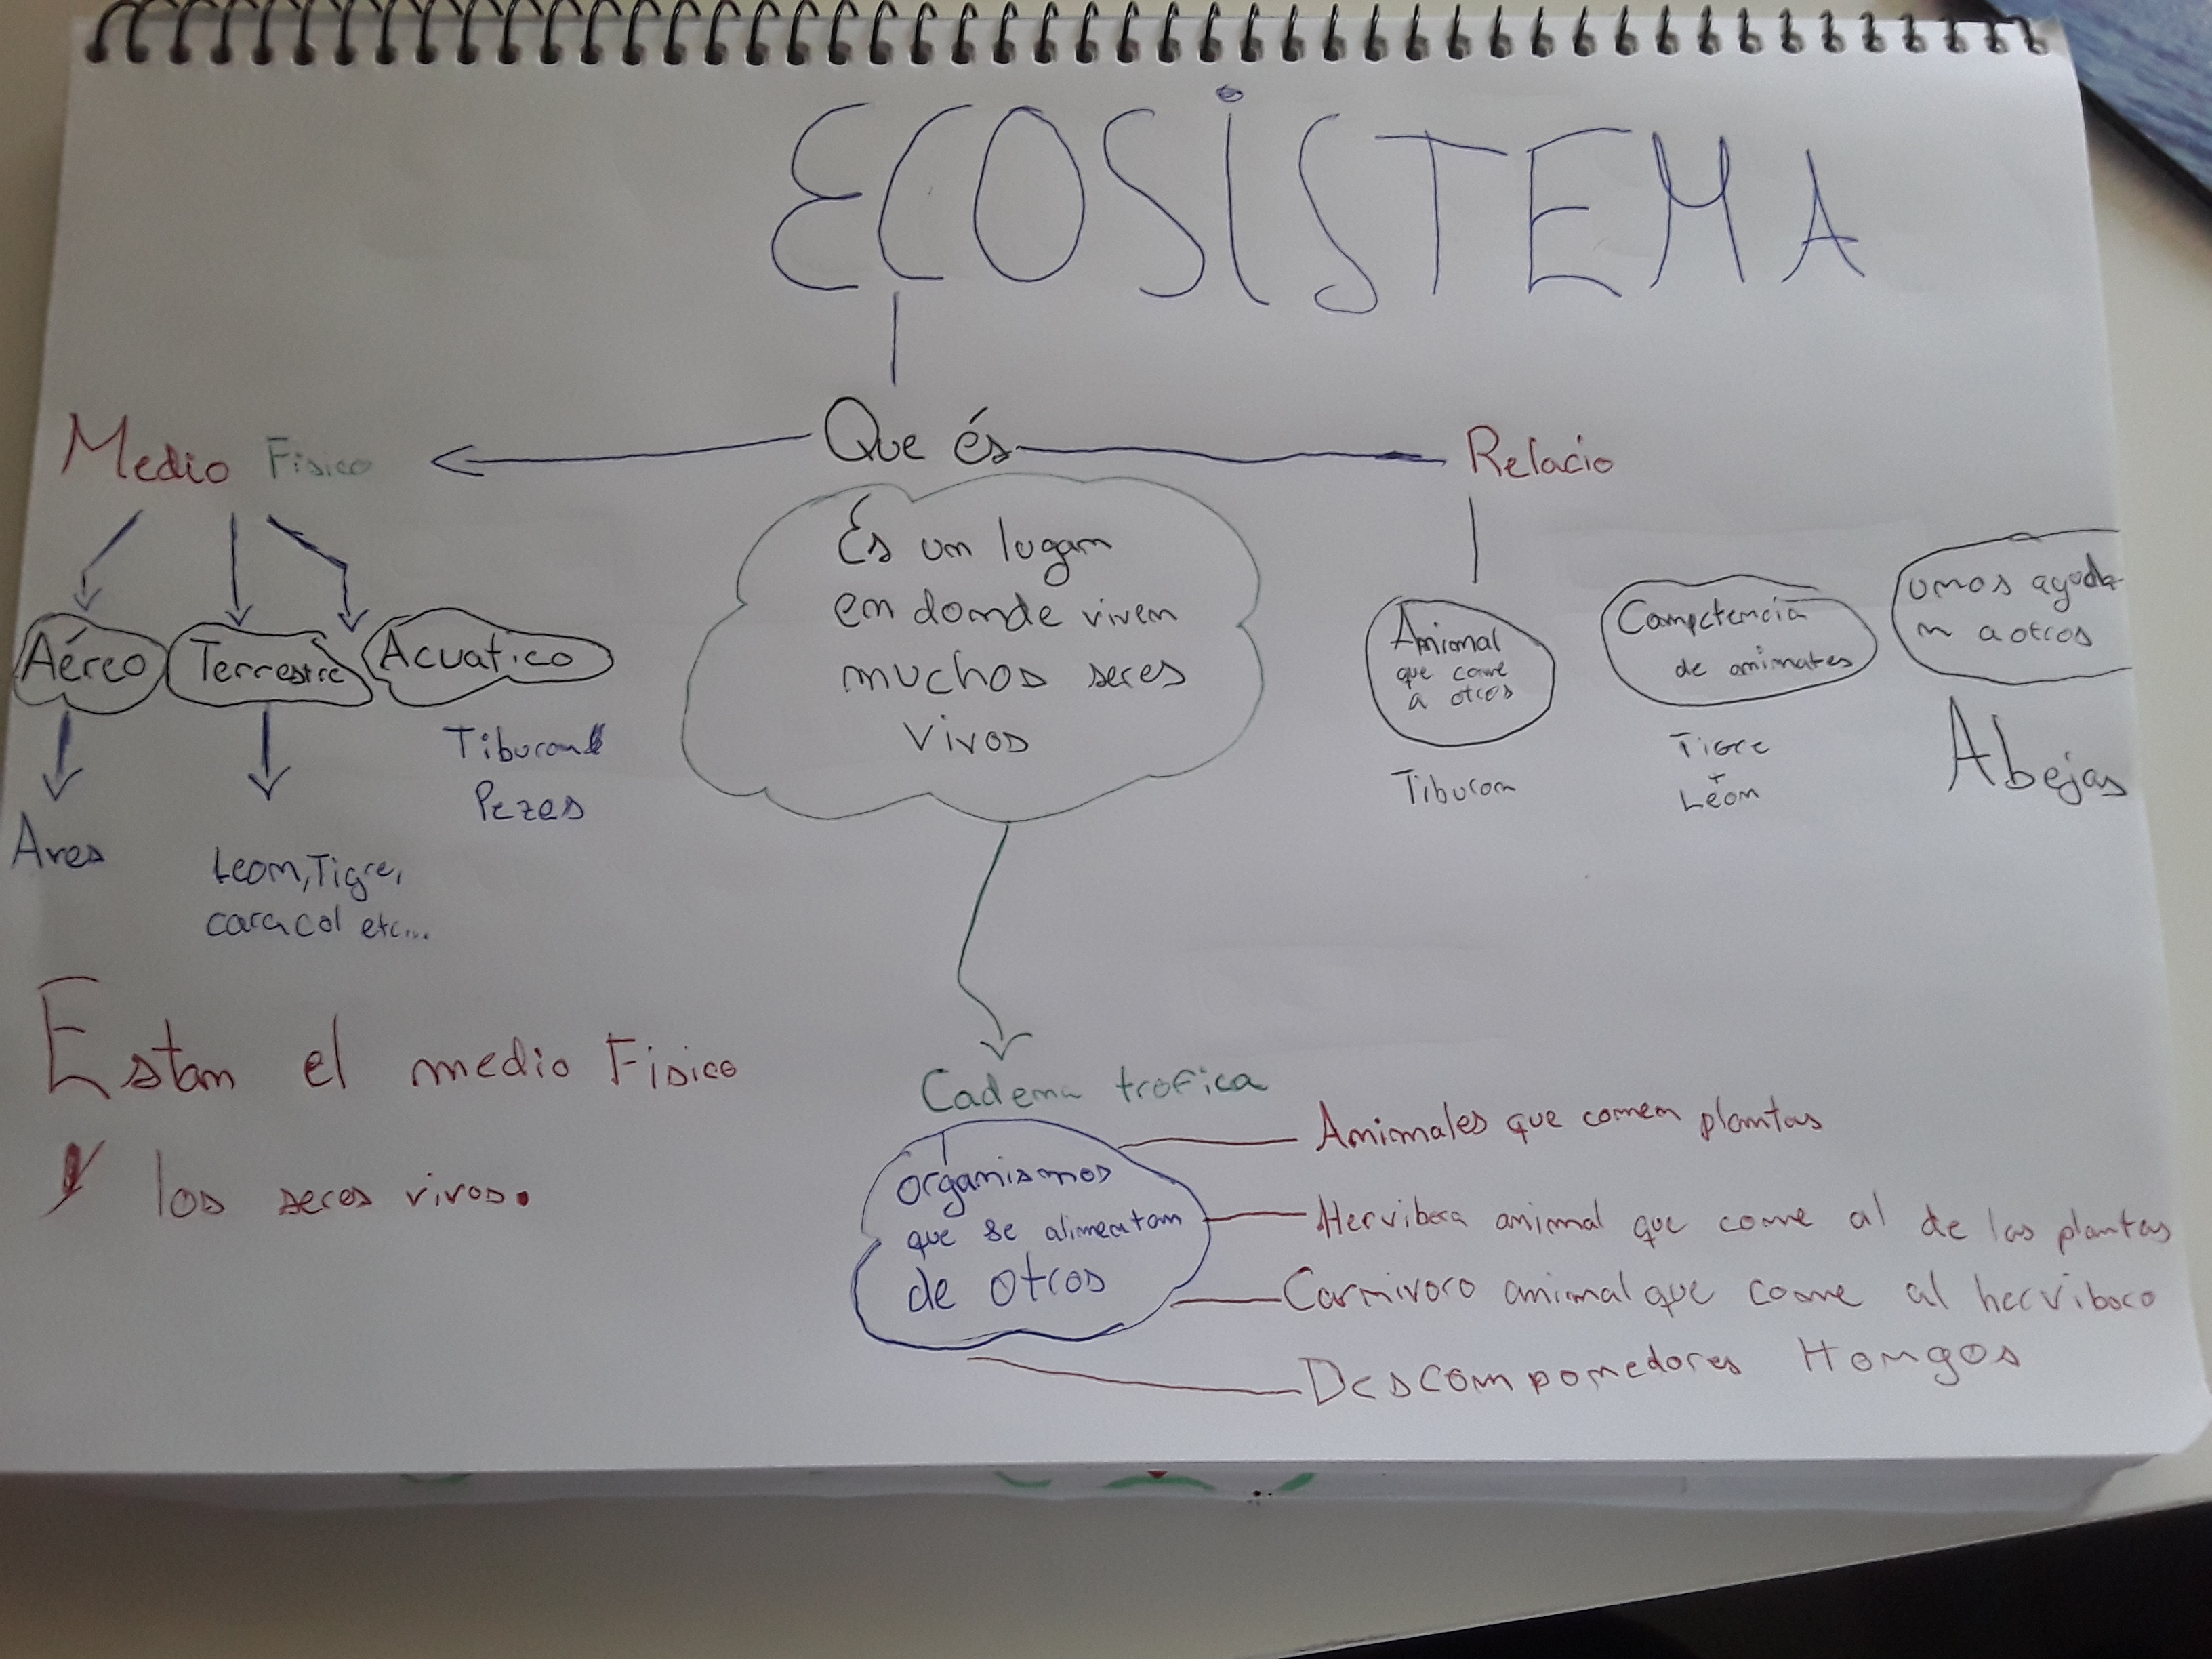 ECOSiSTEMA
Que és
Medio Fisico
Relacio
Es un lugar
en donde viven
muchos seres
vivos
Aéreo
Terrestre
Acuatico
Aves
Leon, Tigre,
caracol etc...
Tiburon
Pezes
Animal
que come
a otros
Tiburon
Competencia
de animales
Tigre
+
Léon
unos ayuda
n a otros
Abejas
Estan el medio Fisico
y los seres vivos.
Cadena trofica
organismos
que se alimentan
de otros
Animales que comen plantas
Hervibora animal que come al de las plantas
Carnivoro animal que come al herviboro
Descomponedores Hongos